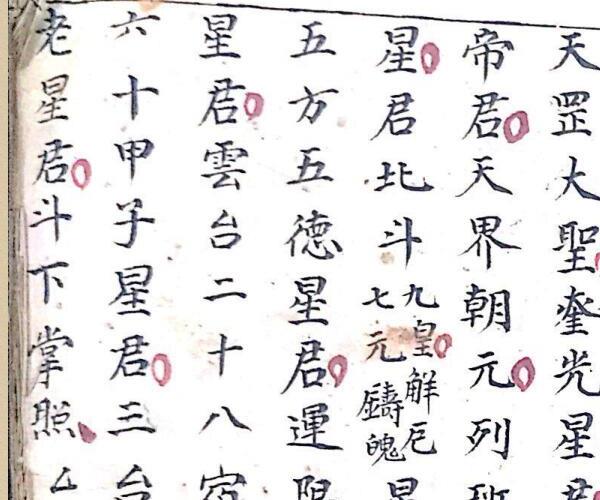 天罡大聖奎光星君
帝君天界朝元列班
星君北斗九皇解厄七元𨯳魄星
五方五德星君運限
星君雲台二十八宿
六十甲子星君三台
老星君斗下掌照